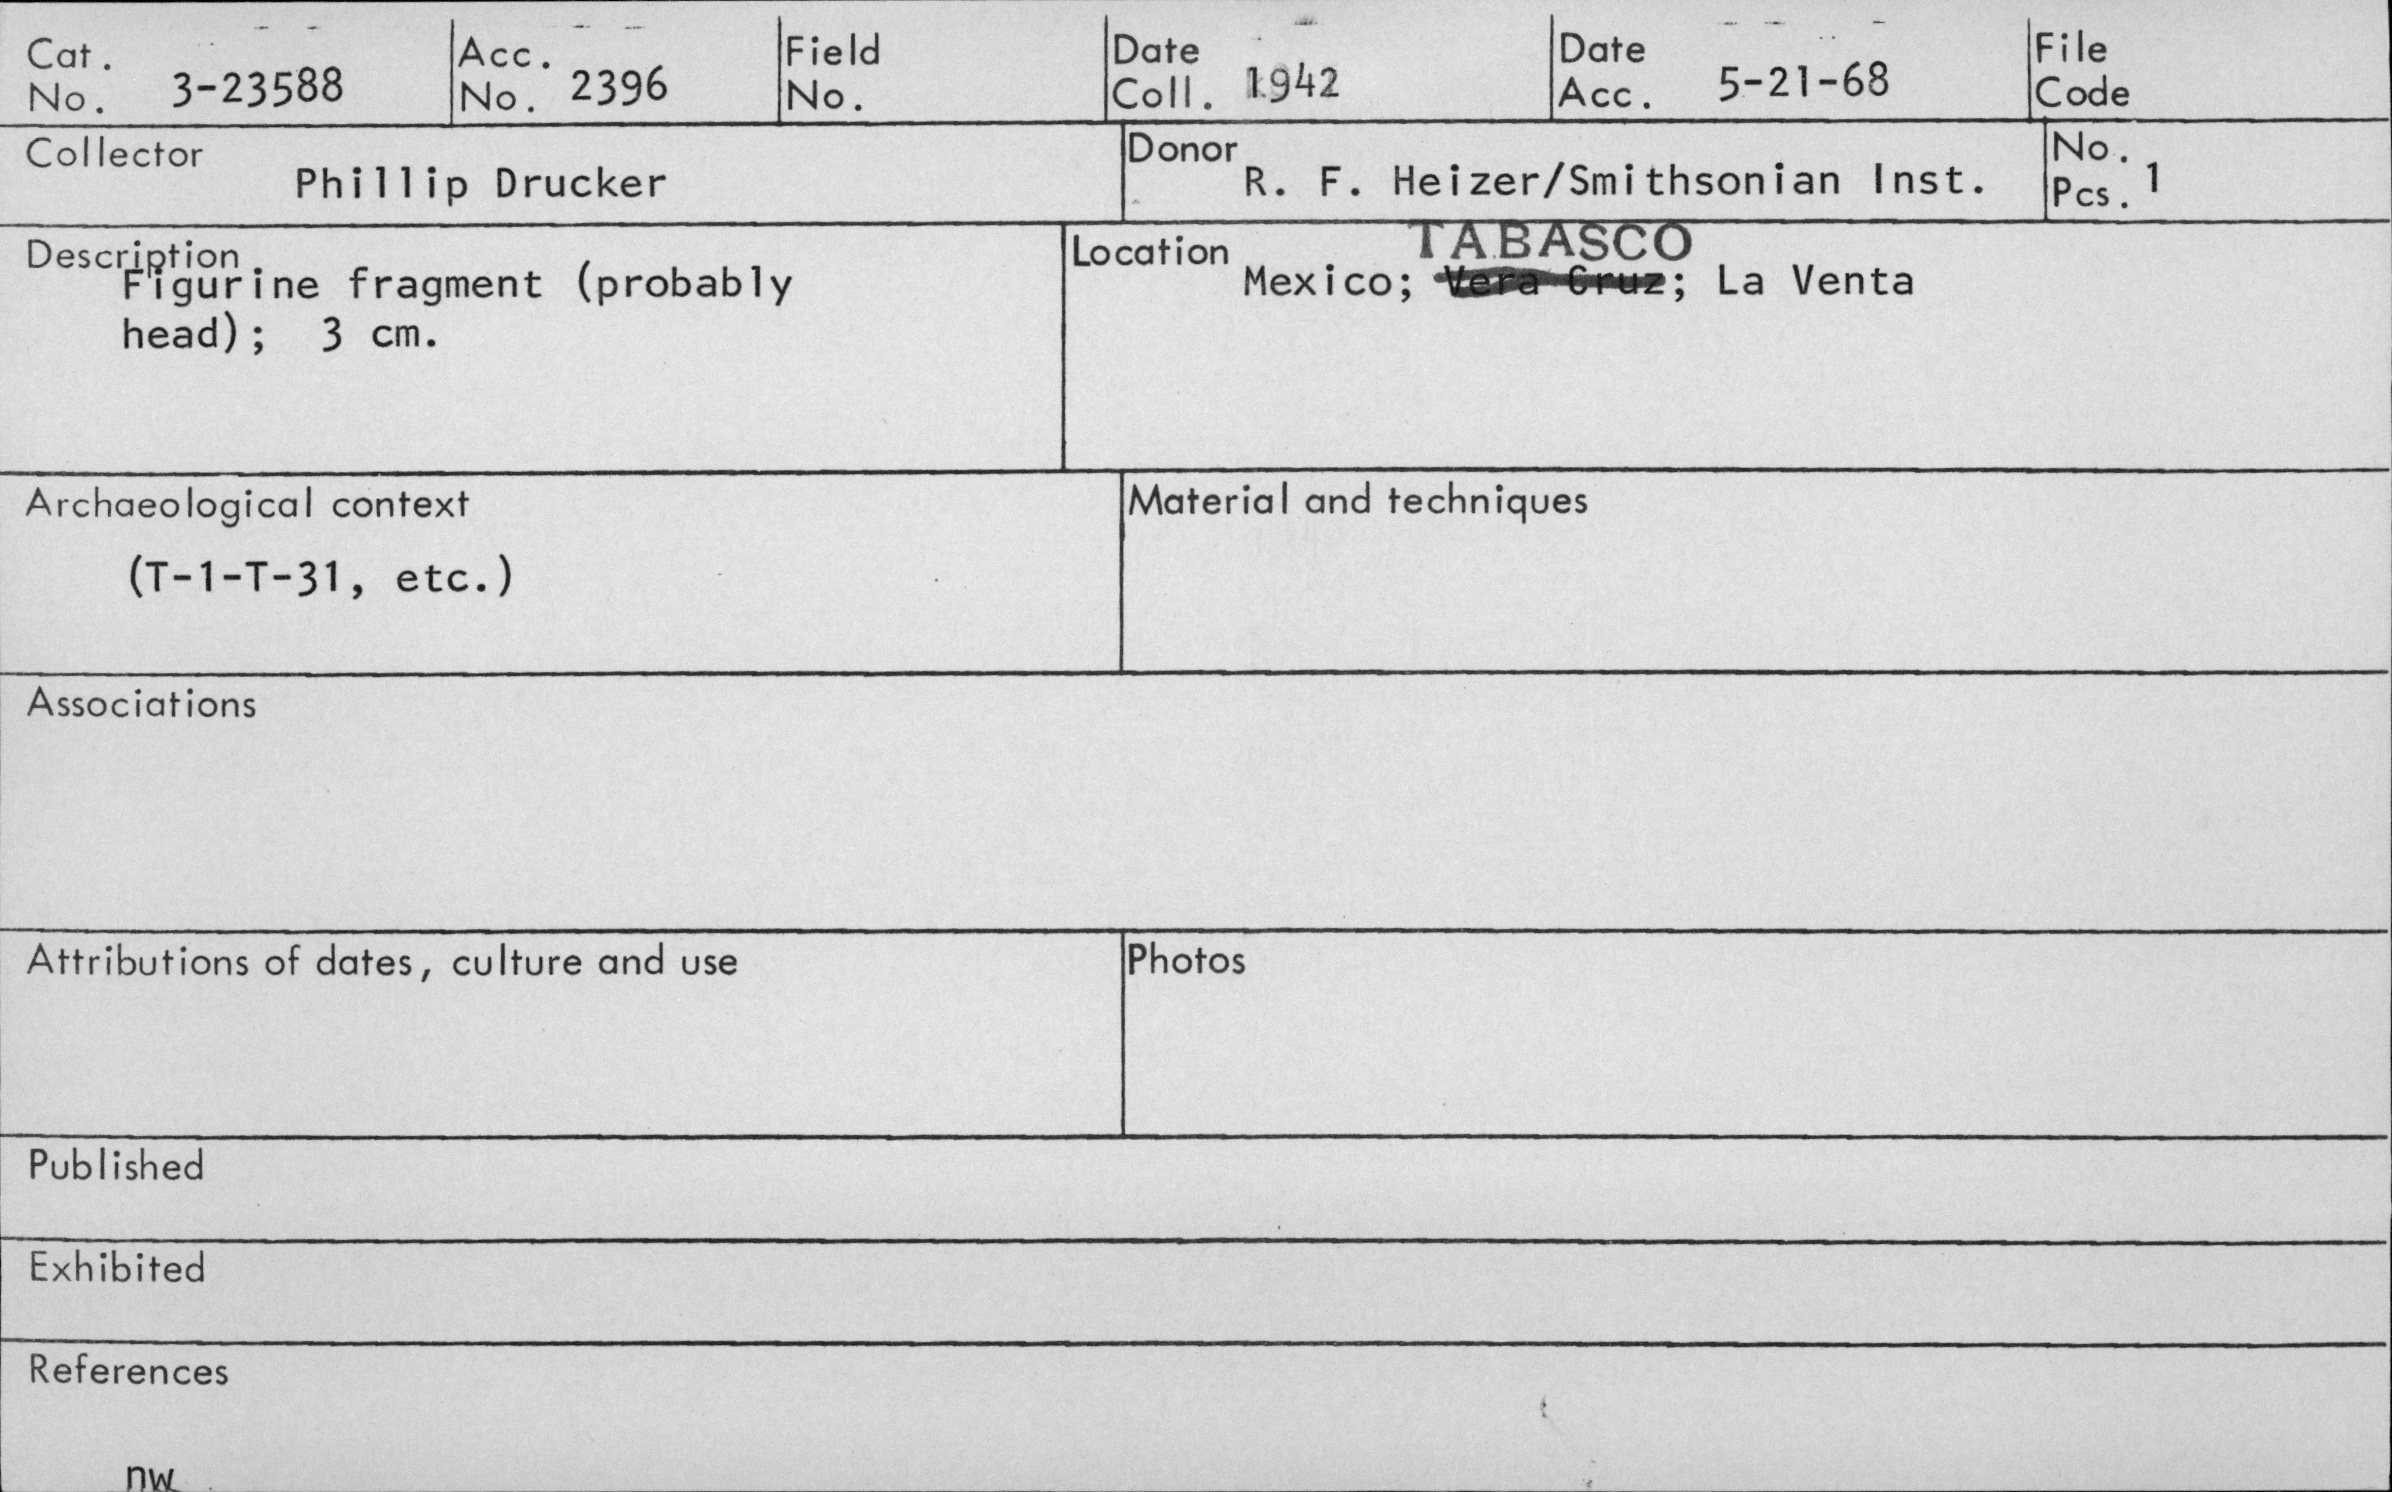 Cat. No. 3-23588
Acc. No. 2396
Field No.
Date Coll. 1942
Date Acc. 5-21-68
File Code
Collector Phillip Drucker
Donor R. F. Heizer/Smithsonian Inst.
No. Pcs. 1
Description
Figurine fragment (probably
head); 3 cm.
Location
TABASCO
Mexico; Vera Cruz; La Venta
Archaeological context
(T-1-T-31, etc.)
Material and techniques
Associations
Attributions of dates, culture and use
Photos
Published
Exhibited
References
nw